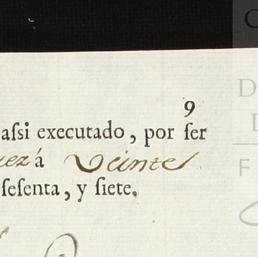 9
assi executado, por ser
ez á Veinte
sesenta, y siete.